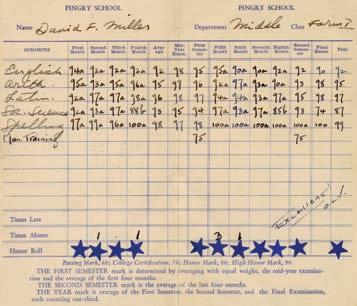 PINGRY SCHOOL PINGRY SCHOOL
Name David F. Miller Department Middle Class Form I
SUBJECTS First Month Second Month Third Month Fourth Month Average Mid-Year Exam. First Semester Fifth Month Sixth Month Seventh Month Eighth Month Second Semester Final Exam. Year
English 94a 92a 92a 92a 92 98 95 95a 90a 90a 92a 92 90 92
Arith. 95a 93a 95a 96a 95 97 96 92a 97a 93a 90a 93 98 95
Latin 97a 92a 97a 98a 96 98 97 94a 94a 93a 97a 95 97
Soc. Science 92a 93a 97a 88b 93 95 94 97a 93a 97a 88b 93 74 87
Spelling 97a 99a 96a 100a 98 97 98 100a 100a 100a 100a 100 100 99
Man. Training 75 75
Excellent!
Times Late
Times Absent 1 1 3 1
Honor Roll
Passing Mark, 60; College Certification, 70; Honor Mark, 80; High Honor Mark, 90
THE FIRST SEMESTER mark is determined by averaging with equal weight, the mid-year examination and the average of the first four months.
THE SECOND SEMESTER mark is the average of the last four months.
THE YEAR mark is the average of the First Semester, the Second Semester, and the Final Examination, each counting one-third.